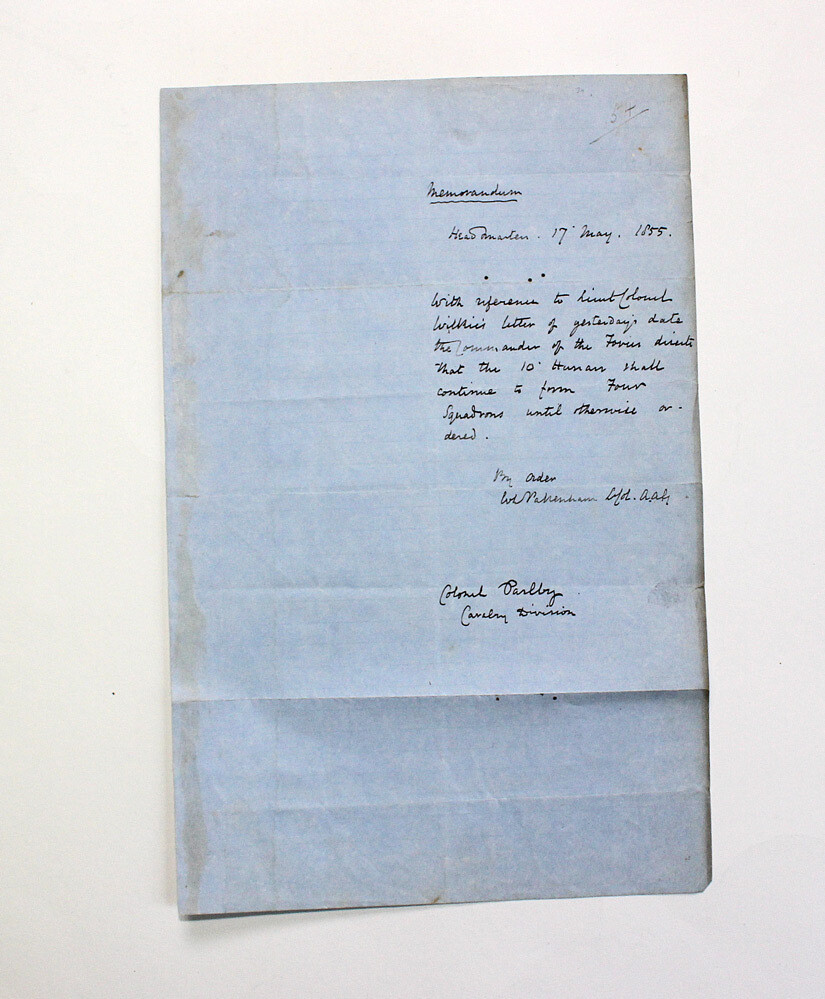 54
Memorandum
Head Quarters. 17 May. 1855.
With reference to Lieut Colonel
Wilkie's letter of yesterday's date
the Commander of the Forces directs
that the 10 Hussars shall
continue to form Four
Squadrons until otherwise or-
dered.
By Order
W L Pakenham Lt Col. A.A.G.
Colonel Parlby
Cavalry Division